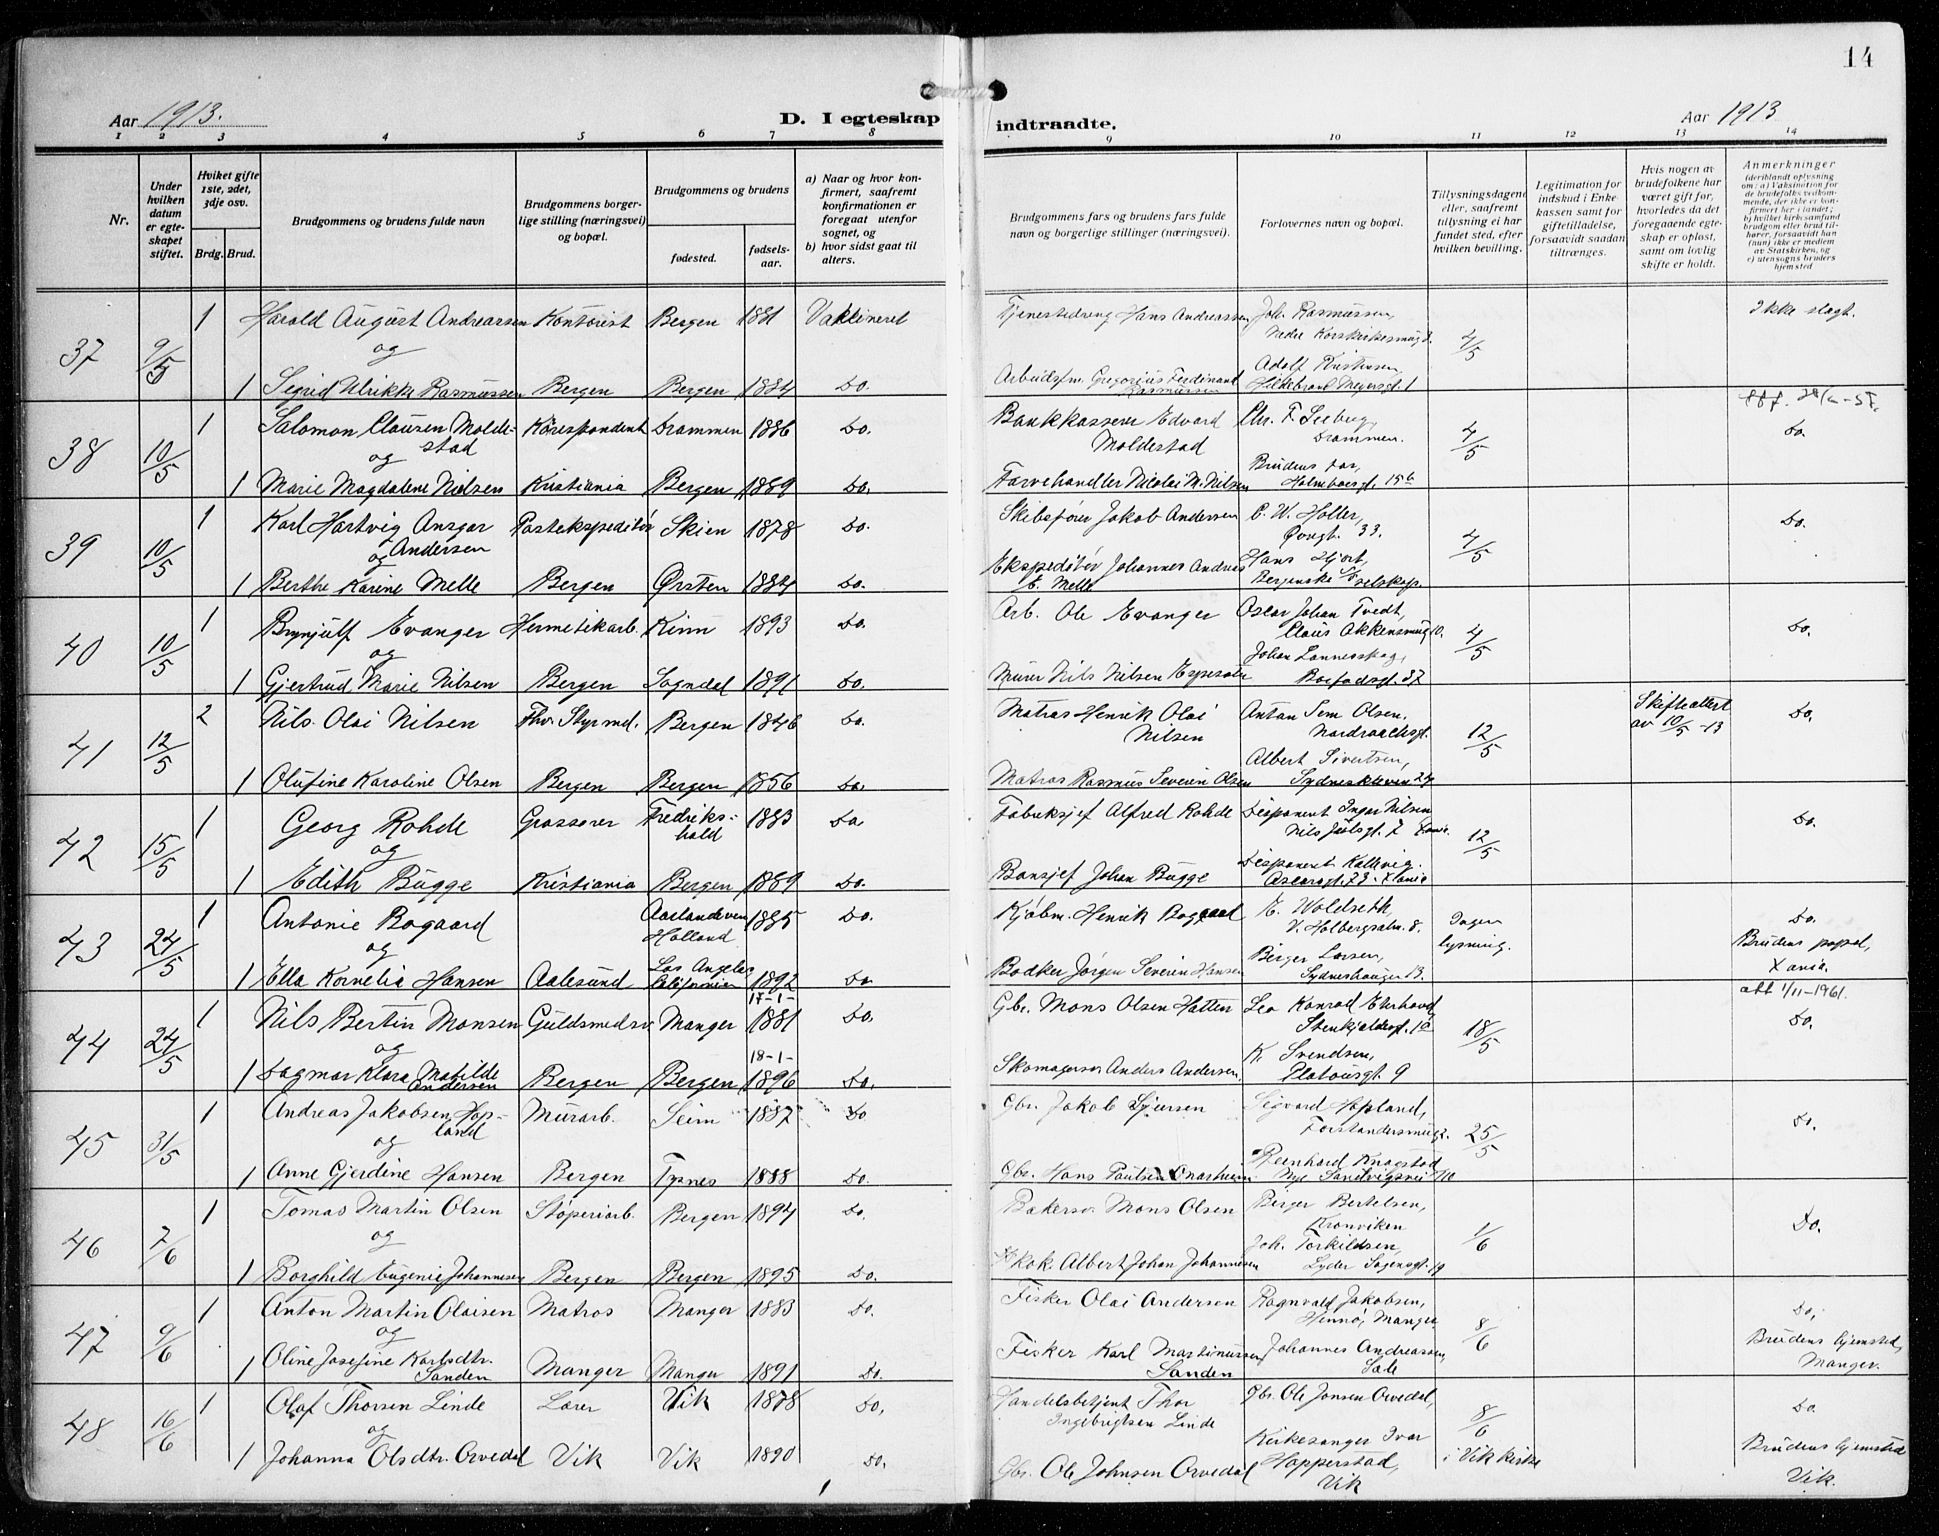 14
Aar 1913.
D. I egteskap indtraadte.
Aar 1913
1 2 3 4 5 6 7 8 9 10 11 12 13 14
Nr.
Under hvilken datum er egteskapet stiftet.
Hvilket gifte 1ste, 2det, 3dje osv.
Brdg. Brud.
Brudgommens og brudens fulde navn
Brudgommens borgerlige stilling (næringsvei) og bopæl.
Brudgommens og brudens
fødested.
fødselsaar.
a) Naar og hvor konfirmert, saafremt konfirmationen er foregaat utenfor sognet, og
b) hvor sidst gaat til alters.
Brudgommens fars og brudens fars fulde navn og borgerlige stillinger (næringsvei).
Forlovernes navn og bopæl.
Tillysningsdagene eller, saafremt tillysning ei har fundet sted, efter hvilken bevilling.
Legitimation for indskud i Enkekassen samt for giftetilladelse, forsaavidt saadan tiltrænges.
Hvis nogen av brudefolkene har været gift før, hvorledes da det foregaaende egteskap er opløst, samt om lovlig skifte er holdt.
Anmerkninger (deriblandt oplysning om: a) Vaksination for de brudefolks vedkommende, der ikke er konfirmert her i landet; b) hvilket kirkesamfund brudgom eller brud tilhører, forsaavidt han (hun) ikke er medlem av Statskirken, og c) utensogns bruders hjemsted
37 9/5 1 Harald August Andreassen Kontorist Bergen 1881 Vaksineret Tjenestedreng Hans Andreassen Joh. Rasmussen, Nedre Korskirkesmug 4/5 Ikke slegt.
og
1 Sigrid Ulrikke Rasmussen Bergen Bergen 1884 Do. Arbeidsfm. Gregorius Ferdinand Rasmussen Adolf Kristensen, Hildebrand Meyersgt. 1
38 10/5 1 Salomon Clausen Moldestad Korespondent Drammen 1886 Do. Bankkasserer Edvard Moldestad Chr. F. Seeberg, Drammen. 4/5 Do.
og
1 Marie Magdalene Nielsen Kristiania Bergen 1889 Do. Farvehandler Nicolai M. Nilsen Brudens far, Holmboesgt. 15b
39 10/5 1 Karl Hartvig Ansgar Andersen Postekspeditør Skien 1878 Do. Skibsfører Jakob Andersen C. W. Holler, Øvregt. 33. 4/5 Do.
og
1 Berthe Karine Melle Bergen Ørsten 1884 Do. Ekspeditør Johannes Andreas E. Melle Hans Hjort, Bergenske D/S selskap
40 10/5 1 Brynjulf Evanger Hermetikarb. Kinn 1893 Do. Arb. Ole Evanger Oscar Johan Tvedt, Claus Okkensmug 10. 4/5 Do.
og
1 Gjertrud Marie Nilsen Bergen Sogndal 1891 Do. Murer Nils Nilsen Johan Lanneskog,
41 12/5 2 Nils Olai Nilsen Fhv. Styrmd. Bergen 1846 Do. Matros Henrik Olai Nilsen Anton Sem Olsen, Nordraaksgt. 12/5 Skifteattest av 10/5-13 Do.
1 Olufine Karoline Olsen Bergen Bergen 1856 Do. Matros Rasmus Severin Olsen Albert Sivertsen, Sydneskleven 24
42 15/5 1 Georg Rohde Grosserer Fredrikshald 1883 Do. Fabriksjef Alfred Rohde Disponent Inger Nilsen Nils Juelsgt. 7 Xania. 12/5 Do.
og
1 Edith Bugge Kristiania Bergen 1889 Do. Banksjef Johan Bugge Disponent Kallevig, Oscarsgt. 73. Xania
43 24/5 1 Antonie Bogaard Holland 1885 Do. Kjøbm. Henrik Bogaard E. Woldseth, V. Holbergsalm. 8. Ingen lysning. Do.
og
1 Ella Kornelia Hansen Aalesund Los Angelas Californien 1892 Do. Bødker Jørgen Severin Hansen Birger Larsen, Sydneshaugen 13. Brudens popæl, Xania.
44 24/5 1 Nils Bertin Monsen Guldsmedsv. Manger 17-1-1881 Do. Gbr. Mons Olsen Hatten Leo Konrad Ehrhard, Stenkjeldersgt. 10 18/5 att 1/11-1961. Do.
og
1 Dagmar Klara Matilde Andersen Bergen Bergen 18-1-1896 Do. Skomagersv. Anders Andersen. K. Svendsen, Platousgt. 9
45 31/5 1 Andreas Jakobsen Hopland Murarb. Seim 1887 Do Gbr. Jakob Sjursen Sigvard Hopland, Forstandersmug 2. 25/5 Do.
og
1 Anne Gjerdine Hansen Bergen Tysnes 1888 Do. Gbr. Hans Paulsen Reinhard Knagstad Nye Sandvigsvei 10
46 7/6 1 Tomas Martin Olsen Støperiarb. Bergen 1894 Do. Bakersv. Mons Olsen Birger Bertelsen, Kronviken 1/6 Do.
og
1 Borghild Eugenie Johannesen Bergen Bergen 1895 Do. Kok. Albert Johan Johannesen Joh. Torkildsen, Lyder Sagensgt. 19
47 9/6 1 Anton Martin Olaisen Matros Manger 1883 Fisker Olai Andersen Ragnvald Jakobsen, Hennø, Manger 8/6 Do.
og
1 Oline Josefine Karlsdtr. Sanden Manger Manger 1891 Do. Fisker Karl Martinussen Sanden Johannes Andreassen, Sæle Brudens hjemsted, Manger.
48 16/6 1 Olaf Thorsen Linde Lærer Vik 1878 Do. Handelsbetjent Thor Ingebrigtsen Linde Gbr. Ole Jonsen Orvedal, 8/6 Do.
og
1 Johanna Olsdtr. Orvedal Vik Vik 1890 Do. Gbr. Ole Johnsen Orvedal Kirkesanger Ivar Hopperstad, Vik i Vik kirke Brudens hjemsted Vik.